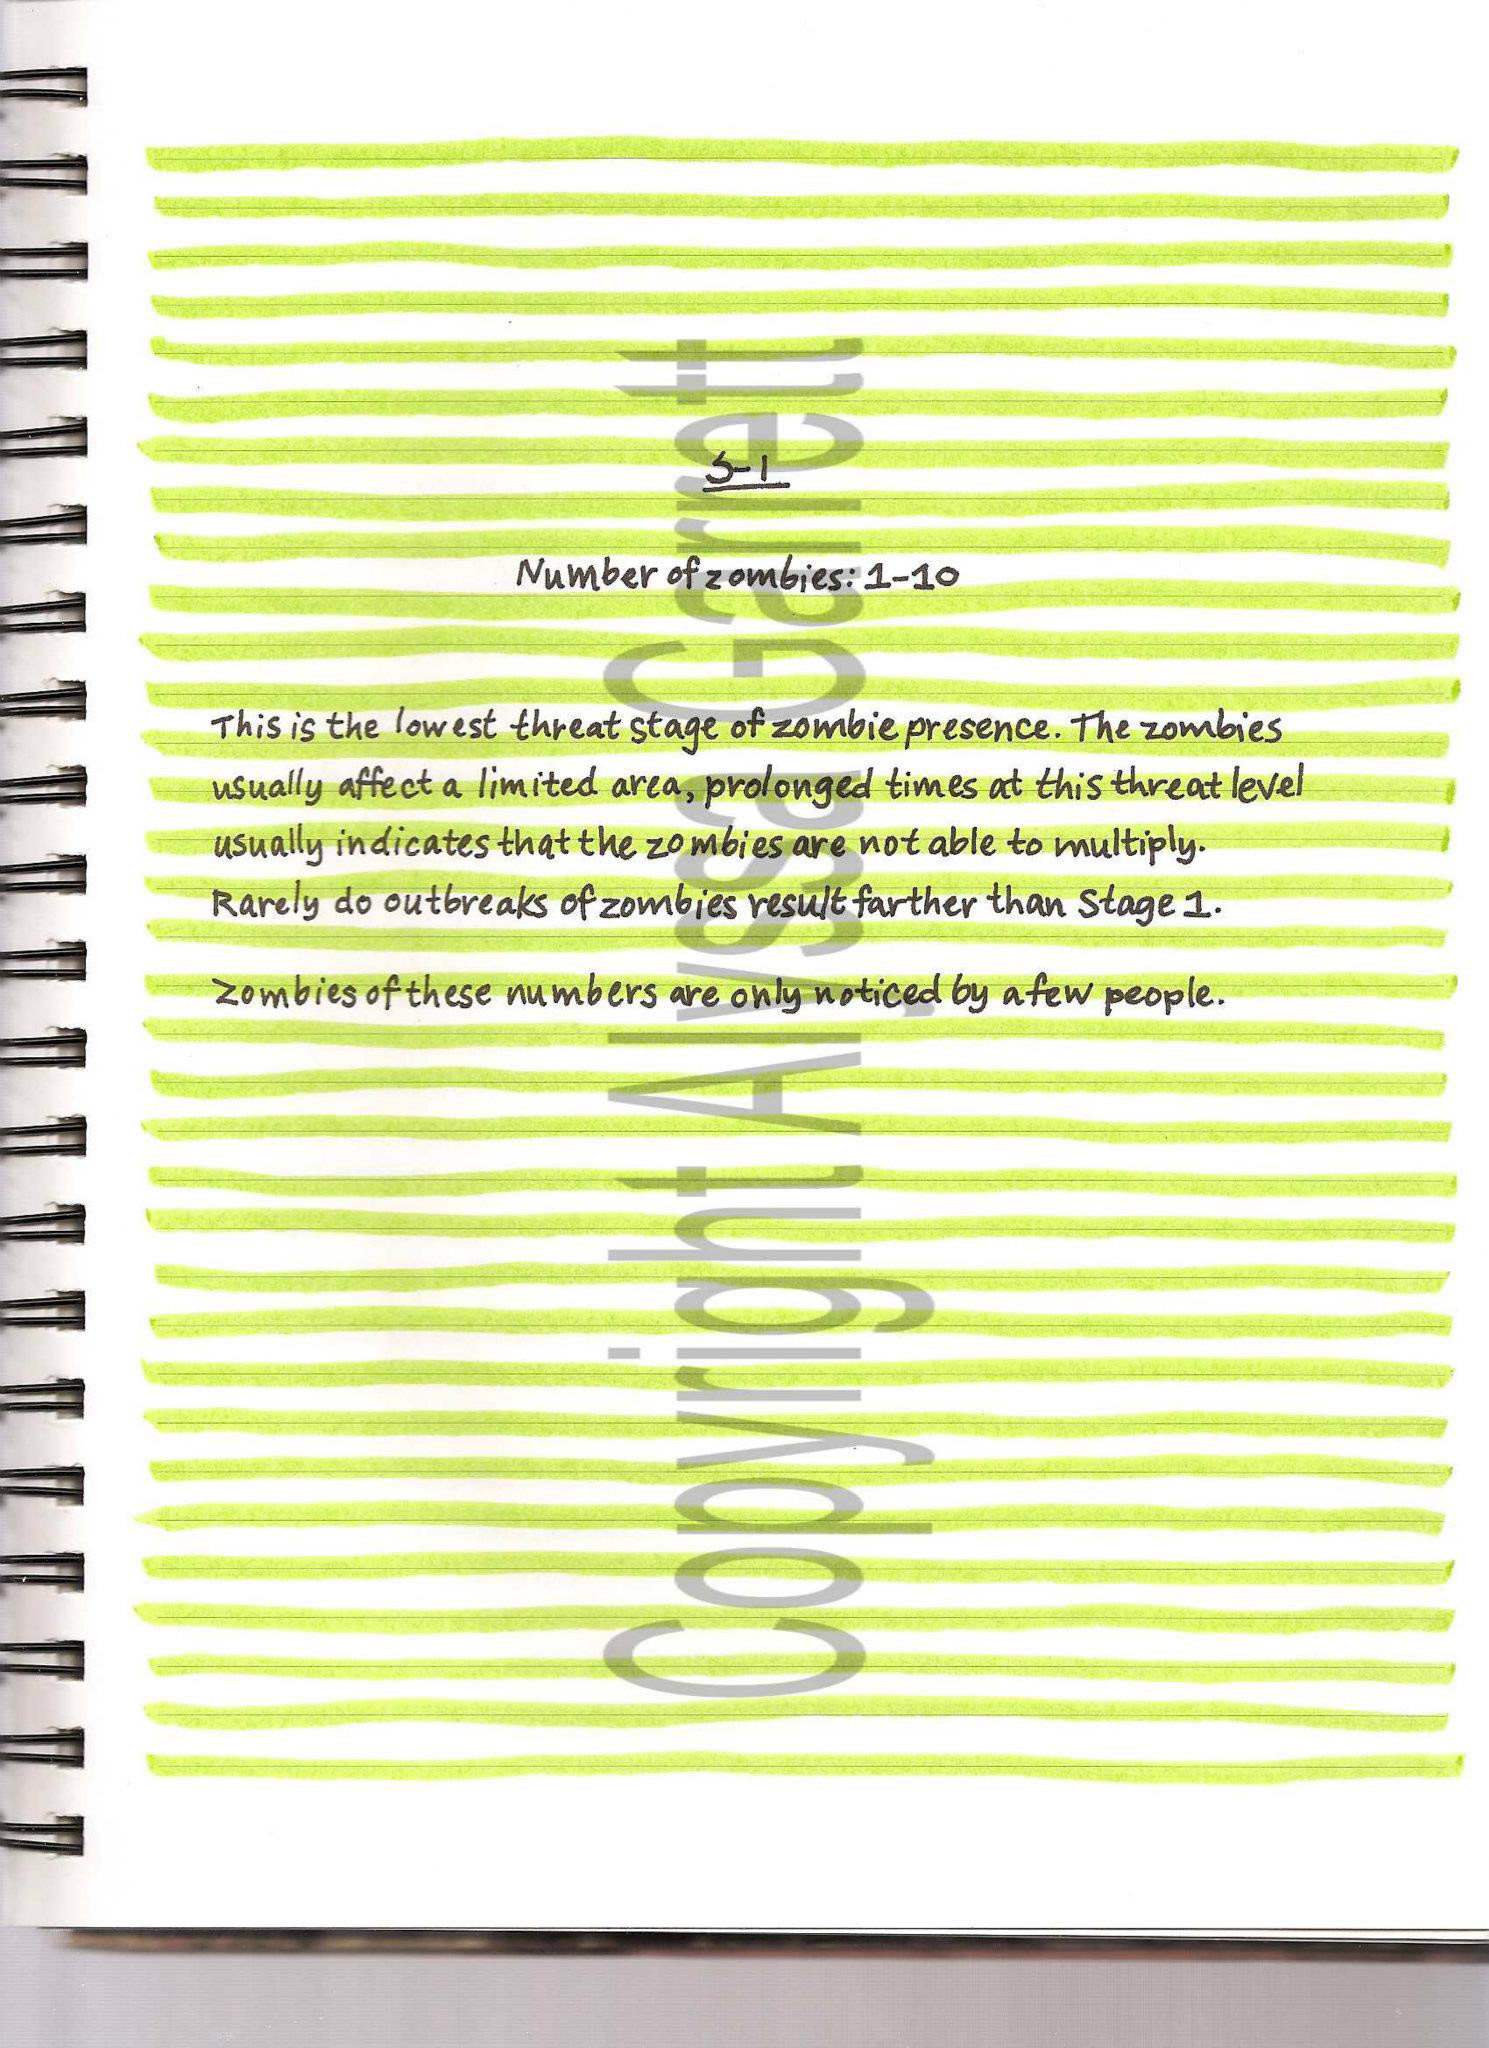 S-1
Number of zombies: 1-10
This is the lowest threat stage of zombie presence. The zombies
usually affect a limited area, prolonged times at this threat level
usually indicates that the zombies are not able to multiply.
Rarely do outbreaks of zombies result farther than Stage 1.
Zombies of these numbers are only noticed by a few people.
Copyright Alyssa Garrett